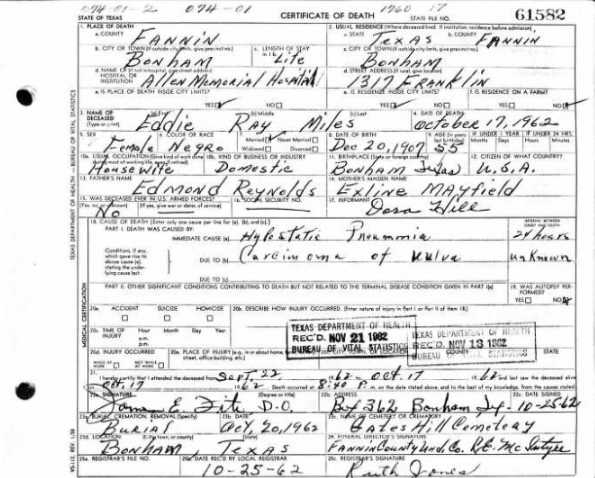 074-01-2 074-01 1960 17
STATE OF TEXAS CERTIFICATE OF DEATH STATE FILE NO. 61582
1. PLACE OF DEATH 2. USUAL RESIDENCE (Where deceased lived. If institution: residence before admission).
a. COUNTY Fannin a. STATE Texas b. COUNTY Fannin
b. CITY OR TOWN (If outside city limits, give precinct no.) c. LENGTH OF STAY c. CITY OR TOWN (If outside city limits, give precinct no.)
Bonham Life Bonham
d. NAME OF (If not in hospital, give street address) d. STREET ADDRESS (If rural, give location)
HOSPITAL OR INSTITUTION Allen Memorial Hospital 1317 Franklin
e. IS PLACE OF DEATH INSIDE CITY LIMITS? e. IS RESIDENCE INSIDE CITY LIMITS? f. IS RESIDENCE ON A FARM?
YES NO YES NO YES NO
3. NAME OF DECEASED (Type or print) (a) First (b) Middle (c) Last 4. DATE OF DEATH
Eddie Ray Miles October 17, 1962
5. SEX 6. COLOR OR RACE 7. Married Never Married Widowed Divorced 8. DATE OF BIRTH 9. AGE (In years IF UNDER 1 YEAR IF UNDER 24 HRS.
Female Negro Dec 20, 1907 55
10a. USUAL OCCUPATION (Give kind of work done 10b. KIND OF BUSINESS OR INDUSTRY 11. BIRTHPLACE (State or foreign country) 12. CITIZEN OF WHAT COUNTRY?
Housewife Domestic Bonham Texas U.S.A.
13. FATHER'S NAME 14. MOTHER'S MAIDEN NAME
Edmond Reynolds Exline Mayfield
15. WAS DECEASED EVER IN U.S. ARMED FORCES? 16. SOCIAL SECURITY NO. 17. INFORMANT
(If yes, give war or dates of service)
No Dora Hill
18. CAUSE OF DEATH (Enter only one cause per line for (a), (b), and (c).) INTERVAL BETWEEN ONSET AND DEATH
PART I. DEATH WAS CAUSED BY:
IMMEDIATE CAUSE (a) Hypostatic Pneumonia 24 hours
Conditions, if any, which gave rise to above cause (a), stating the underlying cause last. DUE TO (b) Carcinoma of Vulva unknown
DUE TO (c)
PART II. OTHER SIGNIFICANT CONDITIONS CONTRIBUTING TO DEATH BUT NOT RELATED TO THE TERMINAL DISEASE CONDITION GIVEN IN PART I(a) 19. WAS AUTOPSY PERFORMED?
YES NO
20a. ACCIDENT SUICIDE HOMICIDE 20b. DESCRIBE HOW INJURY OCCURRED. (Enter nature of injury in Part I or Part II of item 18.)
20c. TIME OF INJURY Hour Month Day Year
a.m.
p.m.
TEXAS DEPARTMENT OF HEALTH
REC'D. NOV 21 1962
BUREAU OF VITAL STATISTICS
TEXAS DEPARTMENT OF HEALTH
REC'D NOV 13 1962
BUREAU OF VITAL STATISTICS
20d. INJURY OCCURRED 20e. PLACE OF INJURY COUNTY STATE
21. I hereby certify that I attended the deceased from Sept. 22 1962 Oct. 17 1962 last saw the deceased alive
Oct. 17 1962 Death occurred at 8:40 P. m. on the date stated above, and to the best of my knowledge, from the causes stated.
22a. SIGNATURE (Degree or title) 22b. ADDRESS 22c. DATE SIGNED
D.O. Box 362 Bonham 10-25-62
23a. BURIAL, CREMATION, REMOVAL (Specify) 23b. DATE 23c. NAME OF CEMETERY OR CREMATORY
Burial Oct, 20, 1962 Gates Hill Cemetery
23d. LOCATION (City, town, or county) (State) 24. FUNERAL DIRECTOR'S SIGNATURE
Bonham Texas Fannin County
25a. REGISTRAR'S FILE NO. 25b. DATE REC'D BY LOCAL REGISTRAR 25c. REGISTRAR'S SIGNATURE
10-25-62 Ruth Jones
TEXAS DEPARTMENT OF HEALTH - BUREAU OF VITAL STATISTICS
MEDICAL CERTIFICATION